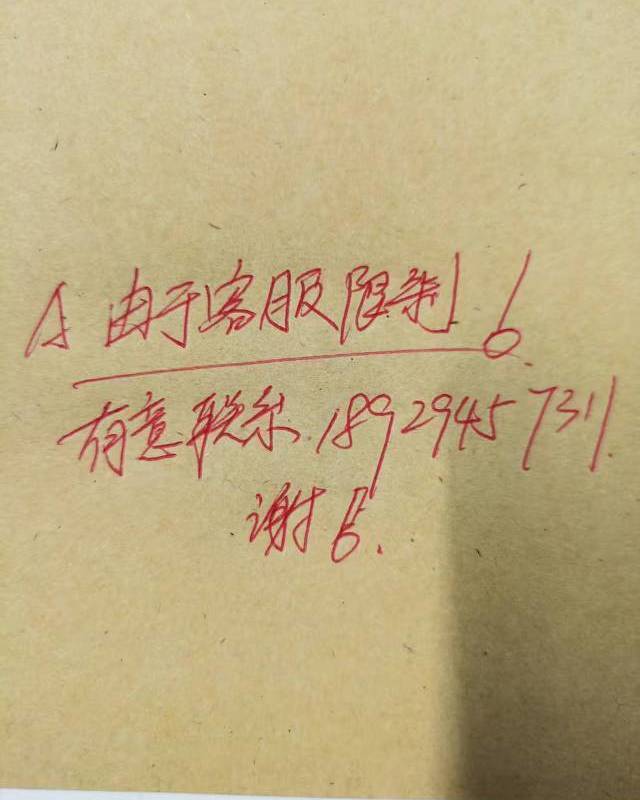 由于客服限制！
有意联系.18929457311.
谢